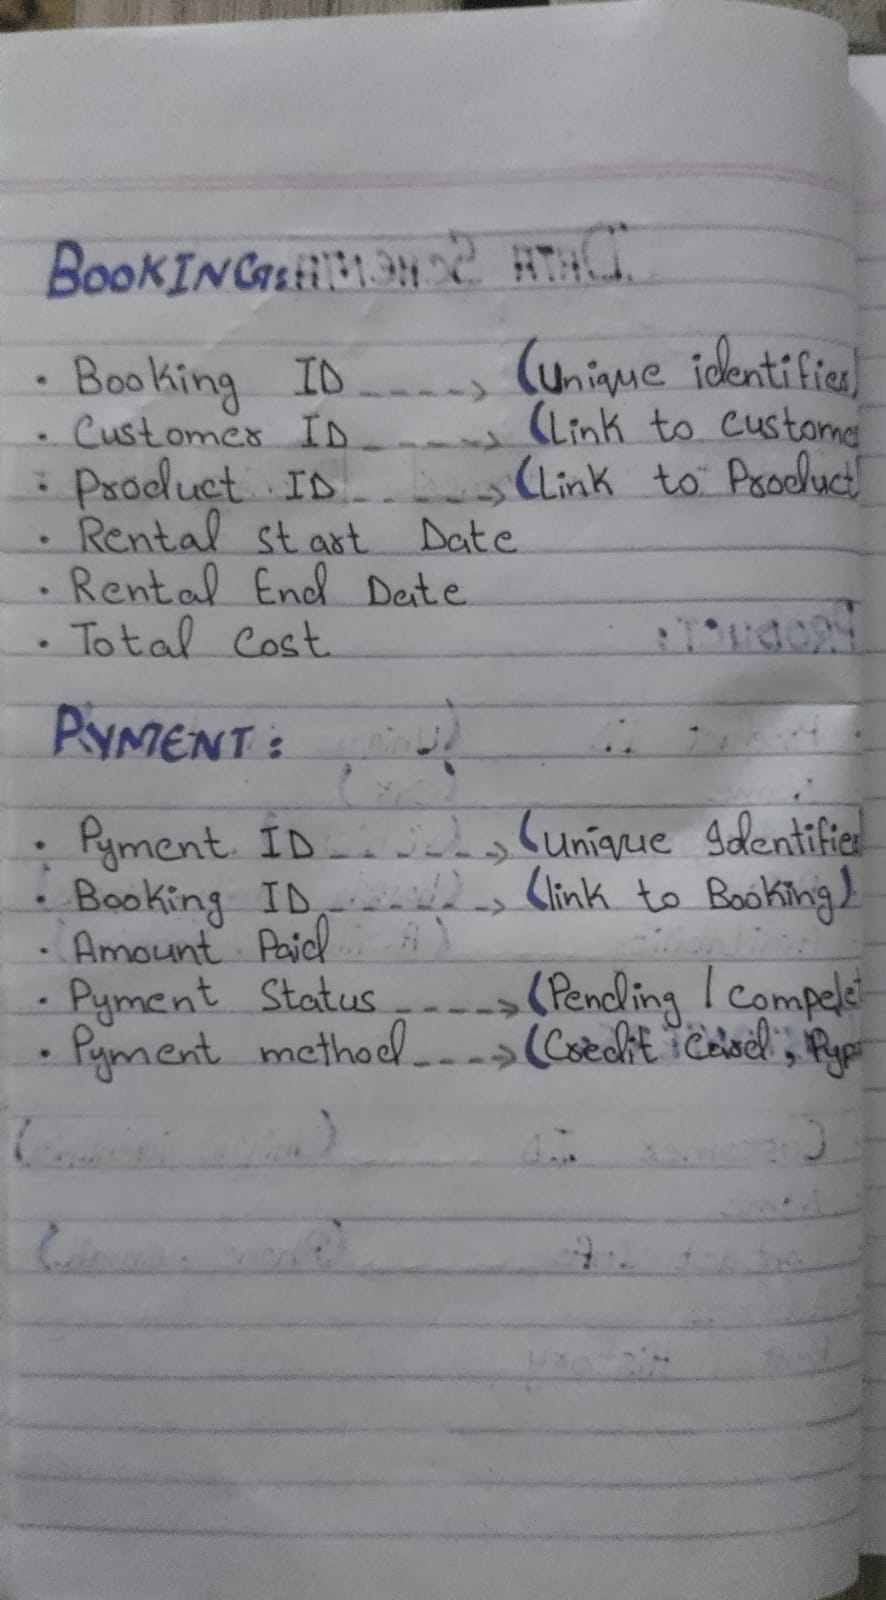 BOOKING:
• Booking ID ----> (Unique identifier)
• Customer ID ----> (Link to Custome
• Product ID ----> (Link to Product
• Rental Start Date
• Rental End Date
• Total Cost
PYMENT:
• Pyment ID ----> (Unique Identifie
• Booking ID ----> (link to Booking)
• Amount Paid
• Pyment Status ----> (Pending / Compelet
• Pyment method ----> (Credit Card, Pyp